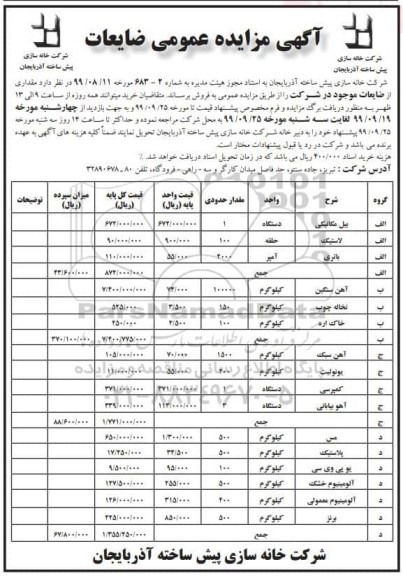 آگهی مزایده عمومی ضایعات
شرکت خانه سازی
پیش ساخته آذربایجان
شرکت خانه سازی
پیش ساخته آذربایجان
شرکت خانه سازی پیش ساخته آذربایجان به استناد مجوز هیئت مدیره به شماره ۲ - ۶۸۳ مورخه ۱۱/ ۰۸/ ۹۹ در نظر دارد مقداری
از ضایعات موجود در شرکت را از طریق مزایده عمومی به فروش برساند. متقاضیان خرید میتوانند همه روزه از ساعت ۹ الی ۱۳
ظهر به منظور دریافت برگ مزایده و فرم مخصوص پیشنهاد قیمت تا مورخه ۹۹/۰۹/۲۵ و به جهت بازدید از چهارشنبه مورخه
۹۹/۰۹/۱۹ لغایت سه شنبه مورخه ۹۹/۰۹/۲۵ به محل شرکت مراجعه نموده و حداکثر تا ساعت ۱۴ روز سه شنبه مورخه
۹۹/۰۹/۲۵ پیشنهاد خود را به دبیر خانه شرکت خانه سازی پیش ساخته آذربایجان تحویل نمایند ضمناً کلیه هزینه های آگهی به عهده
برنده می باشد و شرکت در رد یا قبول پیشنهادات مختار است.
هزینه خرید اسناد ۴۰۰/۰۰۰ ریال می باشد که در زمان تحویل اسناد دریافت خواهد شد.
آدرس شرکت : تبریز، جاده سنتو، حد فاصل میدان کارگر و سه - راهی - فرودگاه، تلفن ۸۰-۳۲۸۹۰۶۷۸
گروه شرح واحد مقدار حدودی قیمت واحد پایه (ریال) قیمت کل پایه (ریال) میزان سپرده (ریال) توضیحات
الف بیل مکانیکی دستگاه ۱ ۶۷۲/۰۰۰/۰۰۰ ۶۷۲/۰۰۰/۰۰۰
الف لاستیک حلقه ۱۰۰ ۹۰۰/۰۰۰ ۹۰/۰۰۰/۰۰۰
الف باتری آمپر ۲۰۰۰ ۵۵/۰۰۰ ۱۱۰/۰۰۰/۰۰۰
الف جمع ۸۷۲/۰۰۰/۰۰۰ ۴۳/۶۰۰/۰۰۰
ب آهن سنگین کیلوگرم ۱۰۰۰۰۰ ۷۴/۰۰۰ ۷/۴۰۰/۰۰۰/۰۰۰
ب نخاله چوب کیلوگرم ۱۵۰ ۳/۵۰۰ ۵۲۵/۰۰۰
ب خاک اره کیلوگرم ۱۰۰ ۲/۵۰۰ ۲۵۰/۰۰۰
ب جمع ۷/۴۰۰/۷۷۵/۰۰۰ ۳۷۰/۱۰۰/۰۰۰
ج آهن سبک کیلوگرم ۱۵۰۰ ۷۰/۰۰۰ ۱۰۵/۰۰۰/۰۰۰
ج یونولیت کیلوگرم ۲۰۰ ۵۵/۰۰۰ ۱۱/۰۰۰/۰۰۰
ج کمپرسی دستگاه ۱
ج آهو بیابانی دستگاه ۳ ۱۱۳/۰۰۰/۰۰۰ ۳۳۹/۰۰۰/۰۰۰
ج جمع ۱/۷۷۱/۰۰۰/۰۰۰ ۸۸/۶۰۰/۰۰۰
د مس کیلوگرم ۵۰۰ ۱/۳۰۰/۰۰۰ ۶۵۰/۰۰۰/۰۰۰
د پلاستیک کیلوگرم ۵۰۰ ۳۴/۵۰۰ ۱۷/۲۵۰/۰۰۰
د یو پی وی سی کیلوگرم ۱۰۰ ۹۵/۰۰۰ ۹/۵۰۰/۰۰۰
د آلومینیوم خشک کیلوگرم ۵۰۰ ۲۵۵/۰۰۰ ۱۲۷/۵۰۰/۰۰۰
د آلومینیوم معمولی کیلوگرم ۴۰۰ ۳۱۵/۰۰۰ ۱۲۶/۰۰۰/۰۰۰
د برنز کیلوگرم ۵۰۰ ۸۵۰/۰۰۰ ۴۲۵/۰۰۰/۰۰۰
د جمع ۱/۳۵۵/۲۵۰/۰۰۰ ۶۷/۸۰۰/۰۰۰
شرکت خانه سازی پیش ساخته آذربایجان
ParsNamadData
۰۲۱-۸۸۳۴۹۶۷۰-۵